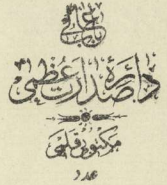 باب عالى
دائرهٔ صدارت عظمى
مكتوبى قلمى
عدد